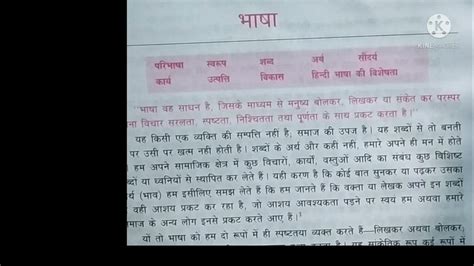 भाषा
परिभाषा स्वरूप शब्द अर्थ सौंदर्य
कार्य उत्पत्ति विकास हिन्दी भाषा की विशेषता
"भाषा वह साधन है, जिसके माध्यम से मनुष्य बोलकर, लिखकर या संकेत कर परस्पर
ना विचार सरलता, स्पष्टता, निश्चितता तथा पूर्णता के साथ प्रकट करता है।"
यह किसी एक व्यक्ति की सम्पत्ति नहीं है, समाज की उपज है। यह शब्दों से तो बनती
पर उसी पर खत्म नहीं होती है। शब्दों के अर्थ और कही नहीं, हमारे अपने ही मन में होते
। हम अपने सामाजिक क्षेत्र में कुछ विचारों, कार्यो, वस्तुओं आदि का सबंध कुछ विशिष्ट
ब्दों या ध्वनियों से स्थापित कर लेते हैं। यही कारण है कि कोई बात सुनकर या पढ़कर उसका
र्थ (भाव) हम इसीलिए समझ लेते हैं कि हम जानते हैं कि वक्ता या लेखक अपने इन शब्दों
वही आशय प्रकट कर रहा है, जो आशय आवश्यकता पड़ने पर स्वयं हम अथवा हमारे
माज के अन्य लोग इनसे प्रकट करते आए हैं।¹
यों तो भाषा को हम दो रूपों में ही स्पष्टतया व्यक्त करते हैं—लिखकर अथवा बोलकर;
है। यह सांकेतिक रूप कई रूपों में